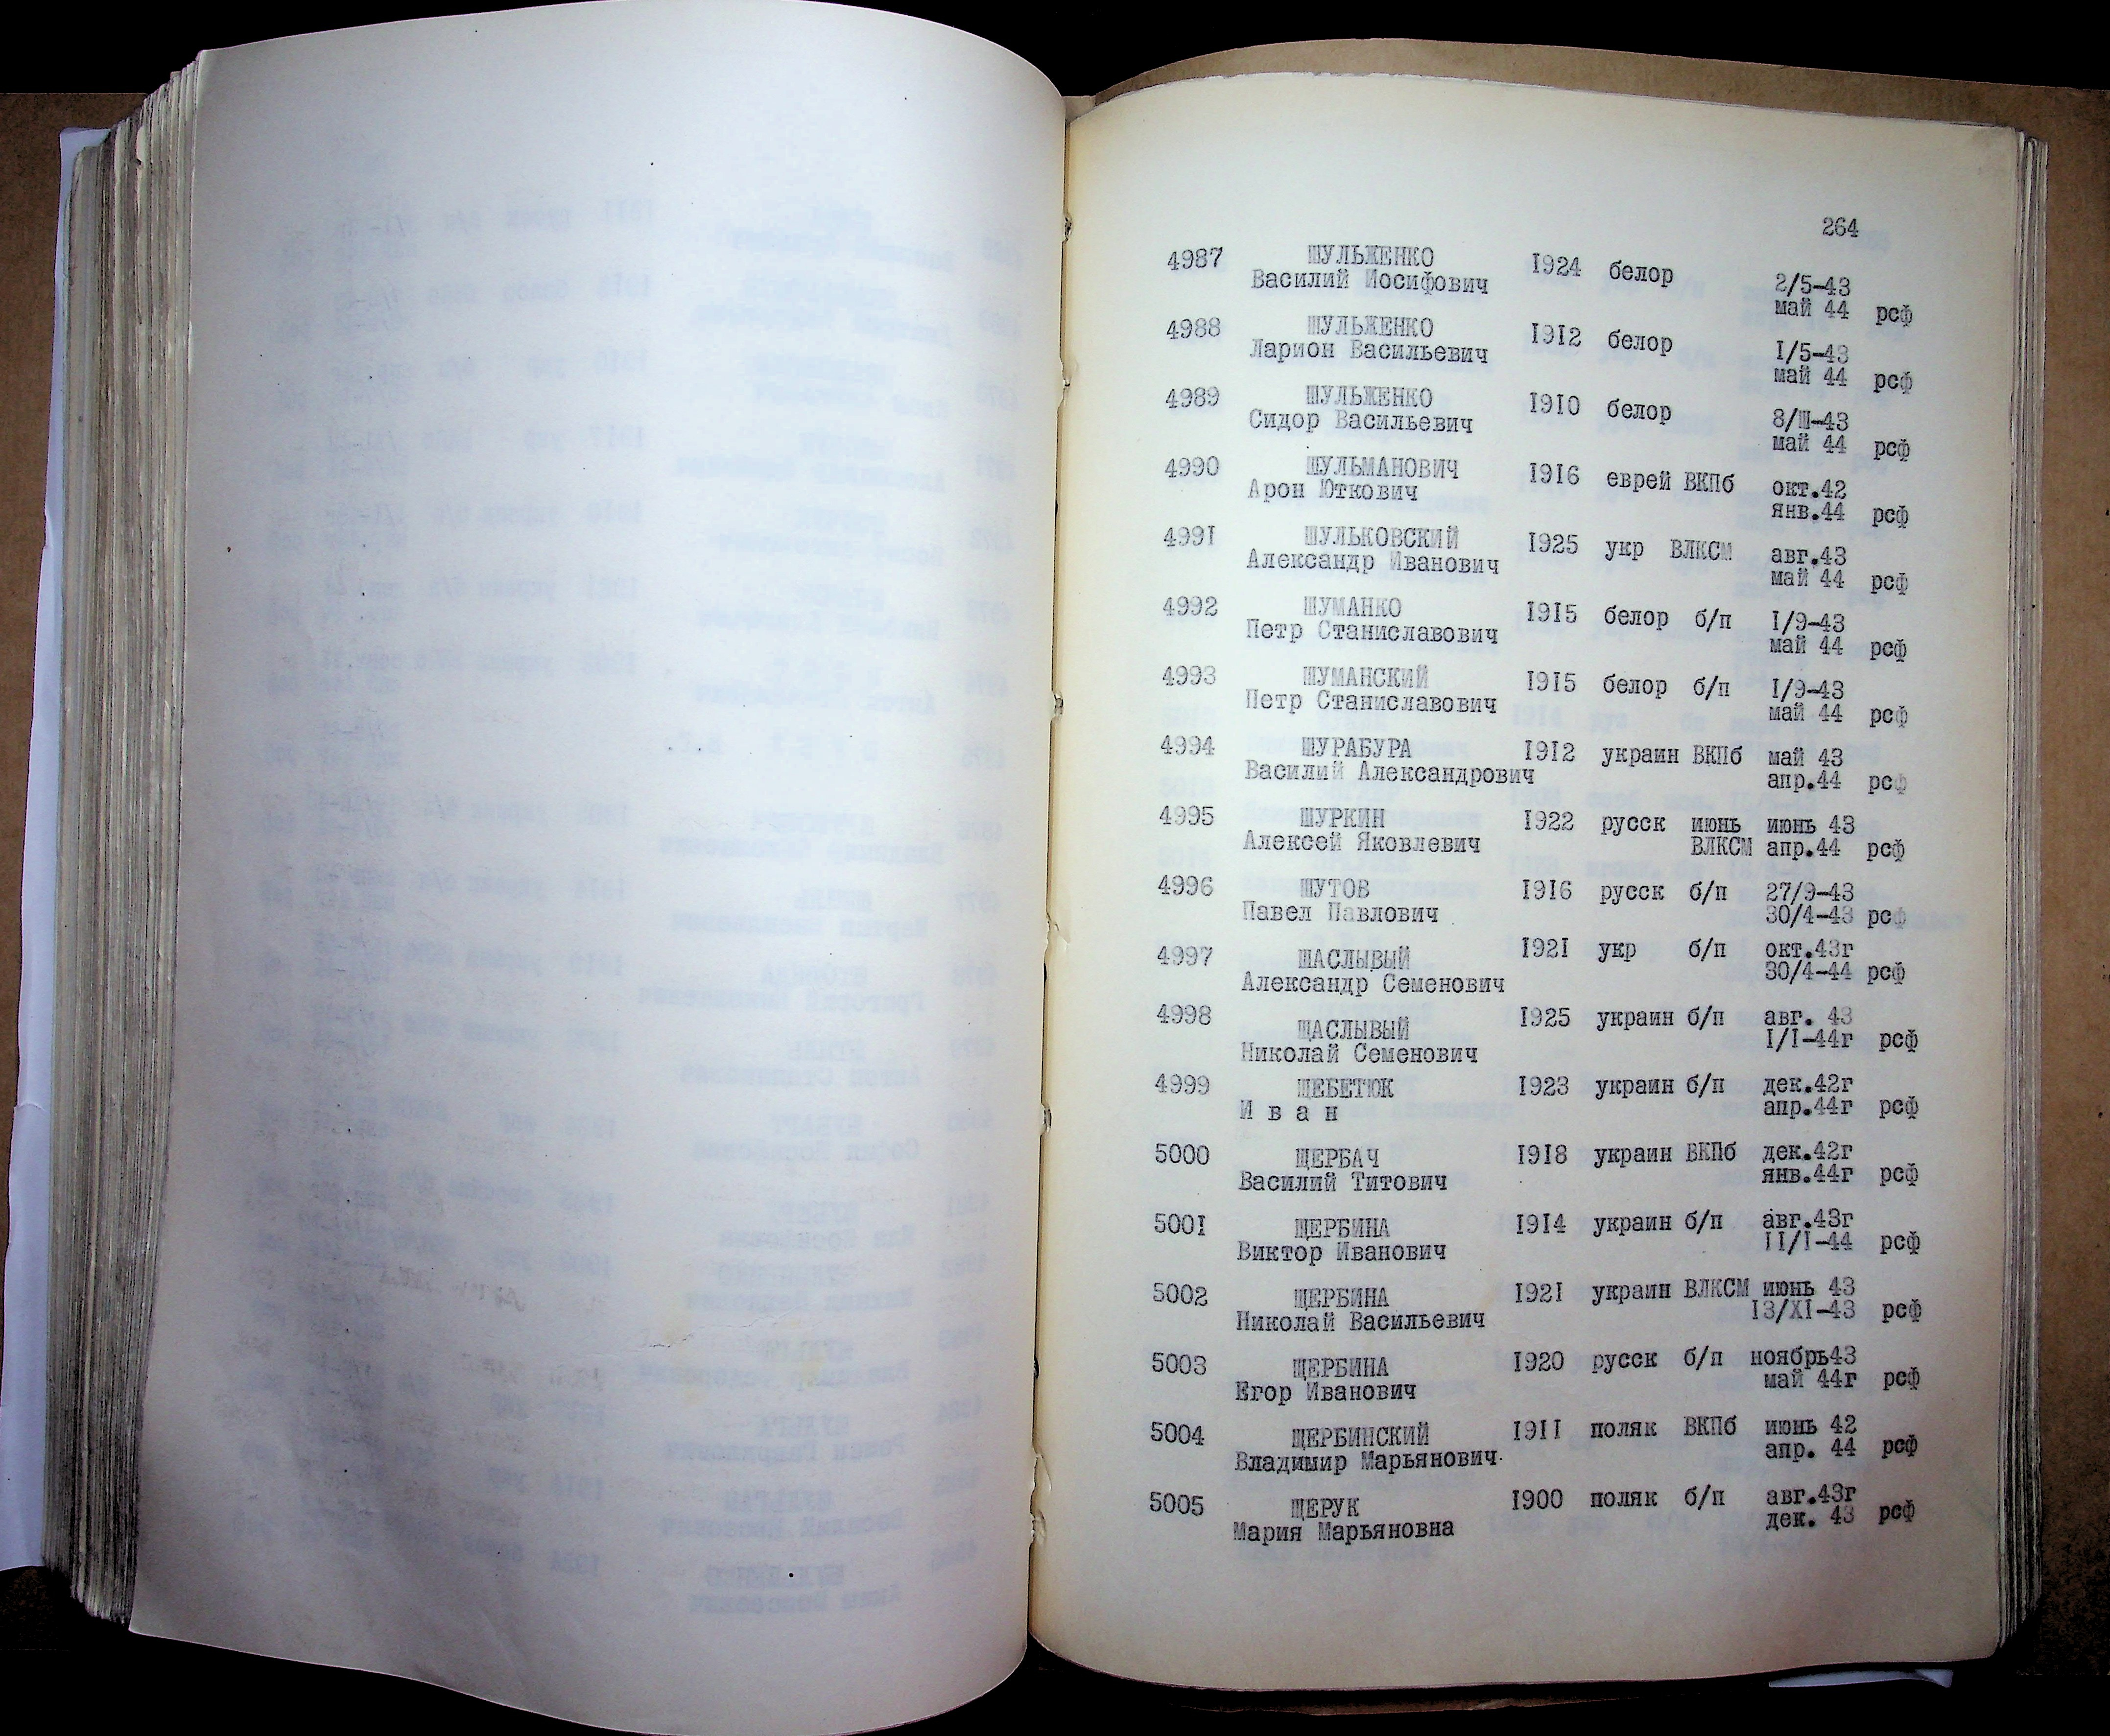 264
4987 ШУЛЬЖЕНКО 1924 белор
Василий Иосифович 2/5-43
май 44 рсф
4988 ШУЛЬЖЕНКО 1912 белор
Ларион Васильевич 1/5-43
май 44 рсф
4989 ШУЛЬЖЕНКО 1910 белор
Сидор Васильевич 8/Ш-43
май 44 рсф
4990 ШУЛЬМАНОВИЧ 1916 еврей ВКПб окт.42
Арон Юткович янв.44 рсф
4991 ШУЛЬКОВСКИЙ 1925 укр ВЛКСМ авг.43
Александр Иванович май 44 рсф
4992 ШУМАНКО 1915 белор б/п 1/9-43
Петр Станиславович май 44 рсф
4993 ШУМАНСКИЙ 1915 белор б/п 1/9-43
Петр Станиславович май 44 рсф
4994 ШУРАБУРА 1912 украин ВКПб май 43
Василий Александрович апр.44 рсф
4995 ШУРКИН 1922 русск июнь июнь 43
Алексей Яковлевич ВЛКСМ апр.44 рсф
4996 ШУТОВ 1916 русск б/п 27/9-43
Павел Павлович 30/4-43 рсф
4997 ЩАСЛЫВЫЙ 1921 укр б/п окт.43г
Александр Семенович 30/4-44 рсф
4998 ЩАСЛЫВЫЙ 1925 украин б/п авг. 43
Николай Семенович 1/1-44г рсф
4999 ЩЕБЕТЮК 1923 украин б/п дек.42г
И в а н апр.44г рсф
5000 ЩЕРБАЧ 1918 украин ВКПб дек.42г
Василий Титович янв.44г рсф
5001 ЩЕРБИНА 1914 украин б/п авг.43г
Виктор Иванович 11/1-44 рсф
5002 ЩЕРБИНА 1921 украин ВЛКСМ июнь 43
Николай Васильевич 13/XI-43 рсф
5003 ЩЕРБИНА 1920 русск б/п ноябрь43
Егор Иванович май 44г рсф
5004 ЩЕРБИНСКИЙ 1911 поляк ВКПб июнь 42
Владимир Марьянович апр. 44 рсф
5005 ЩЕРУК 1900 поляк б/п авг.43г
Мария Марьяновна дек. 43 рсф